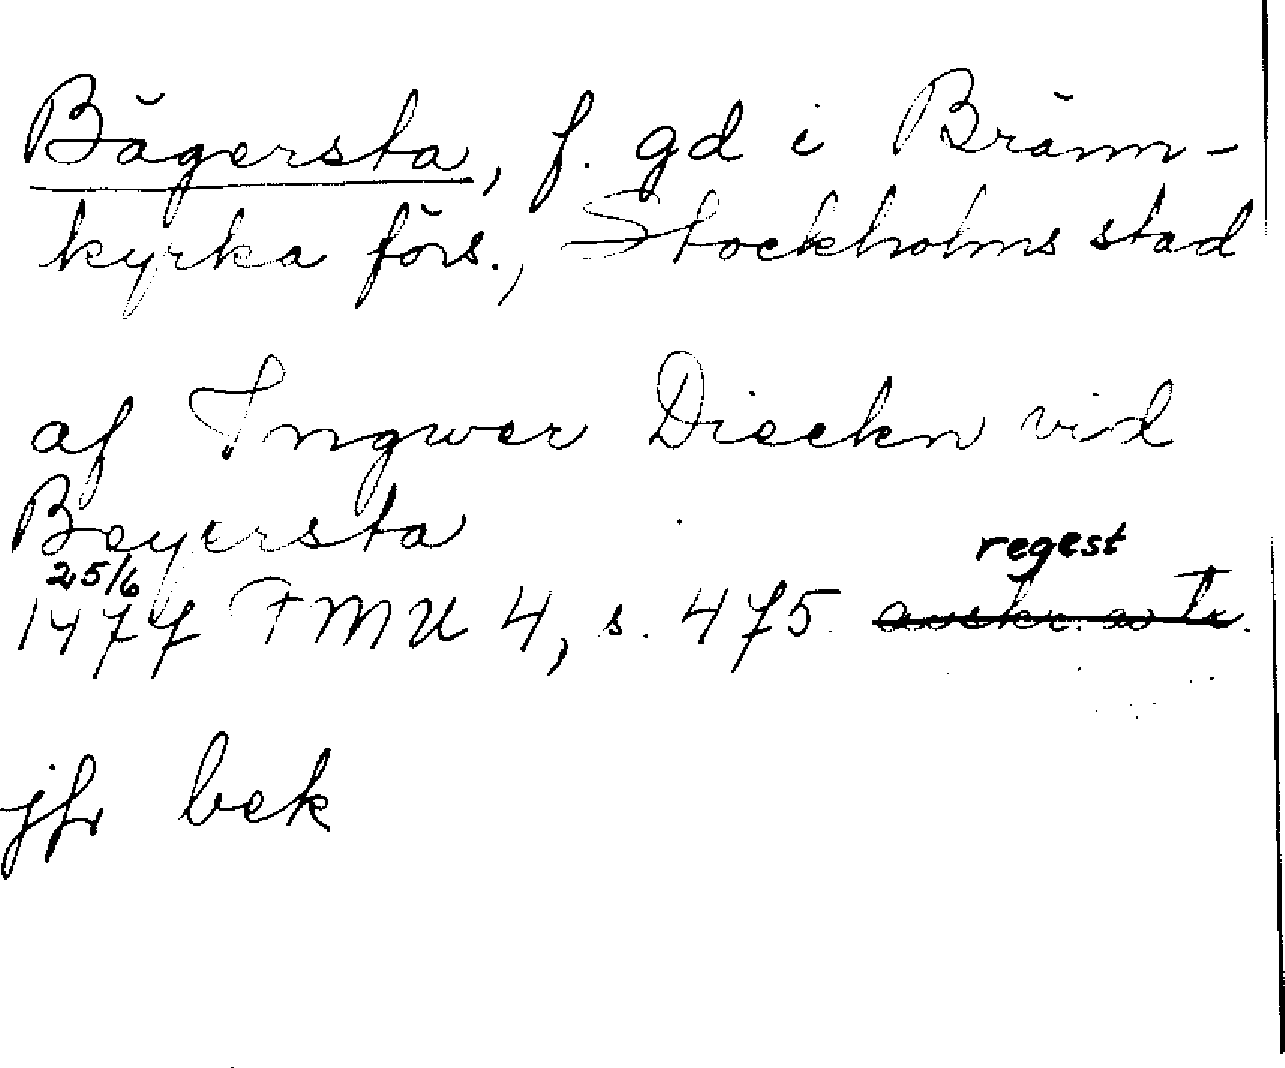 Bägersta, f. gd i Bränn-
kyrka förs., Stockholms stad
af Ingwer Dieekn vid
Beyersta
25/6
1477 FMU 4, s. 475 regest
jfr bek